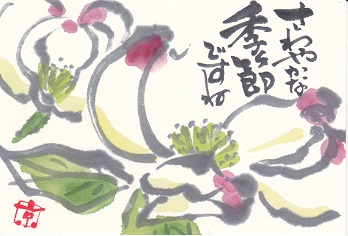 さわやかな
季節
ですね
京